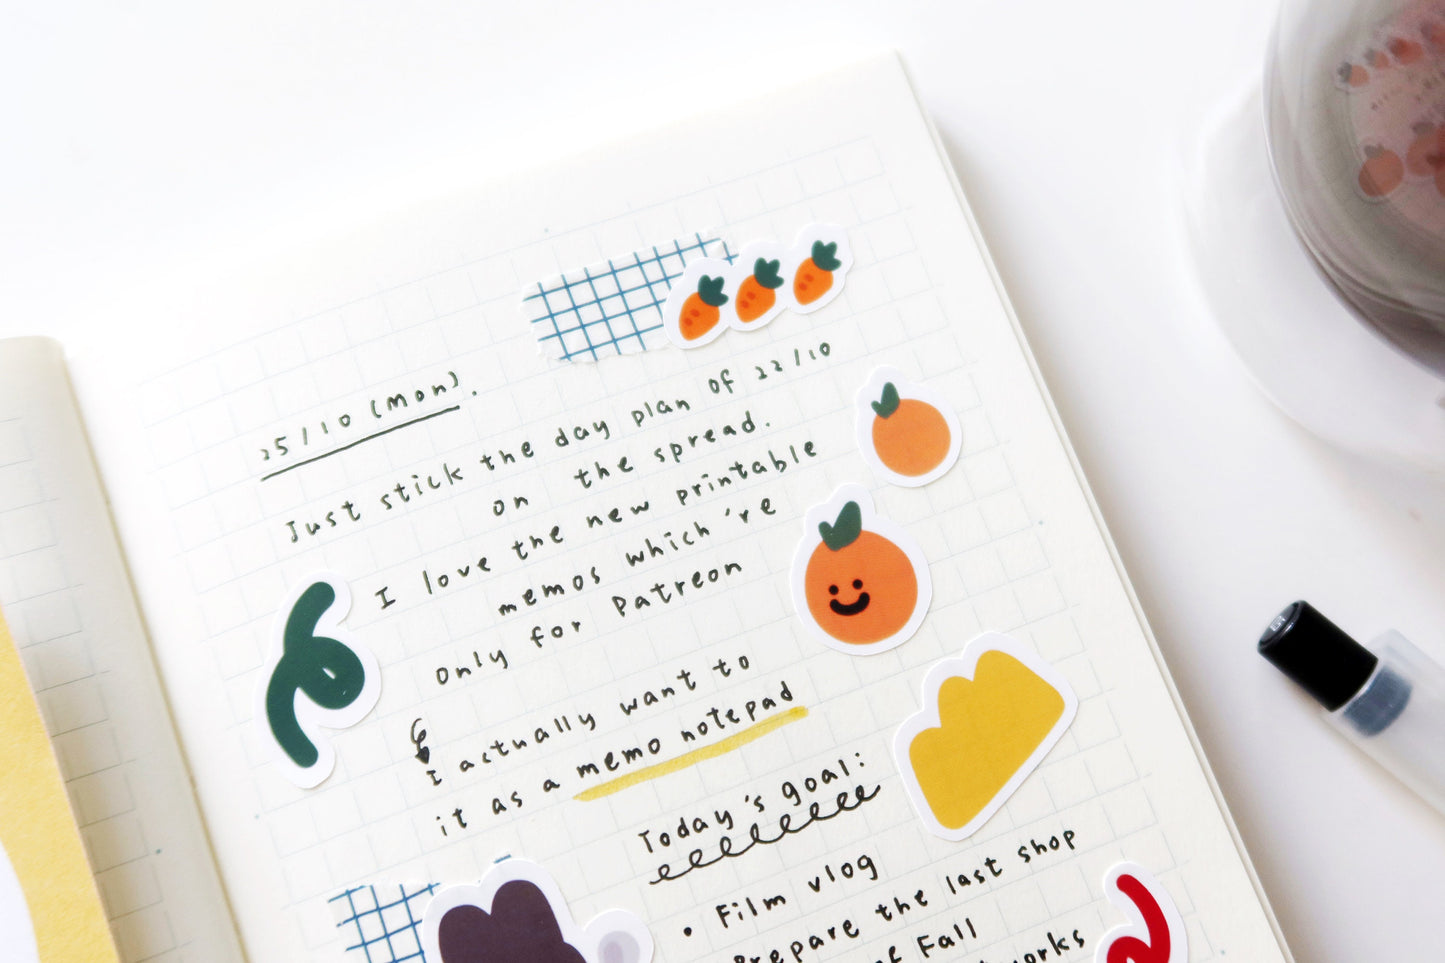 25/10 (Mon).
Just stick the day plan of 22/10
on the spread.
I love the new printable
memos which're
only for Patreon
I actually want to
it as a memo notepad
Today's goal:
• Film vlog
Prepare the last shop
of Fall